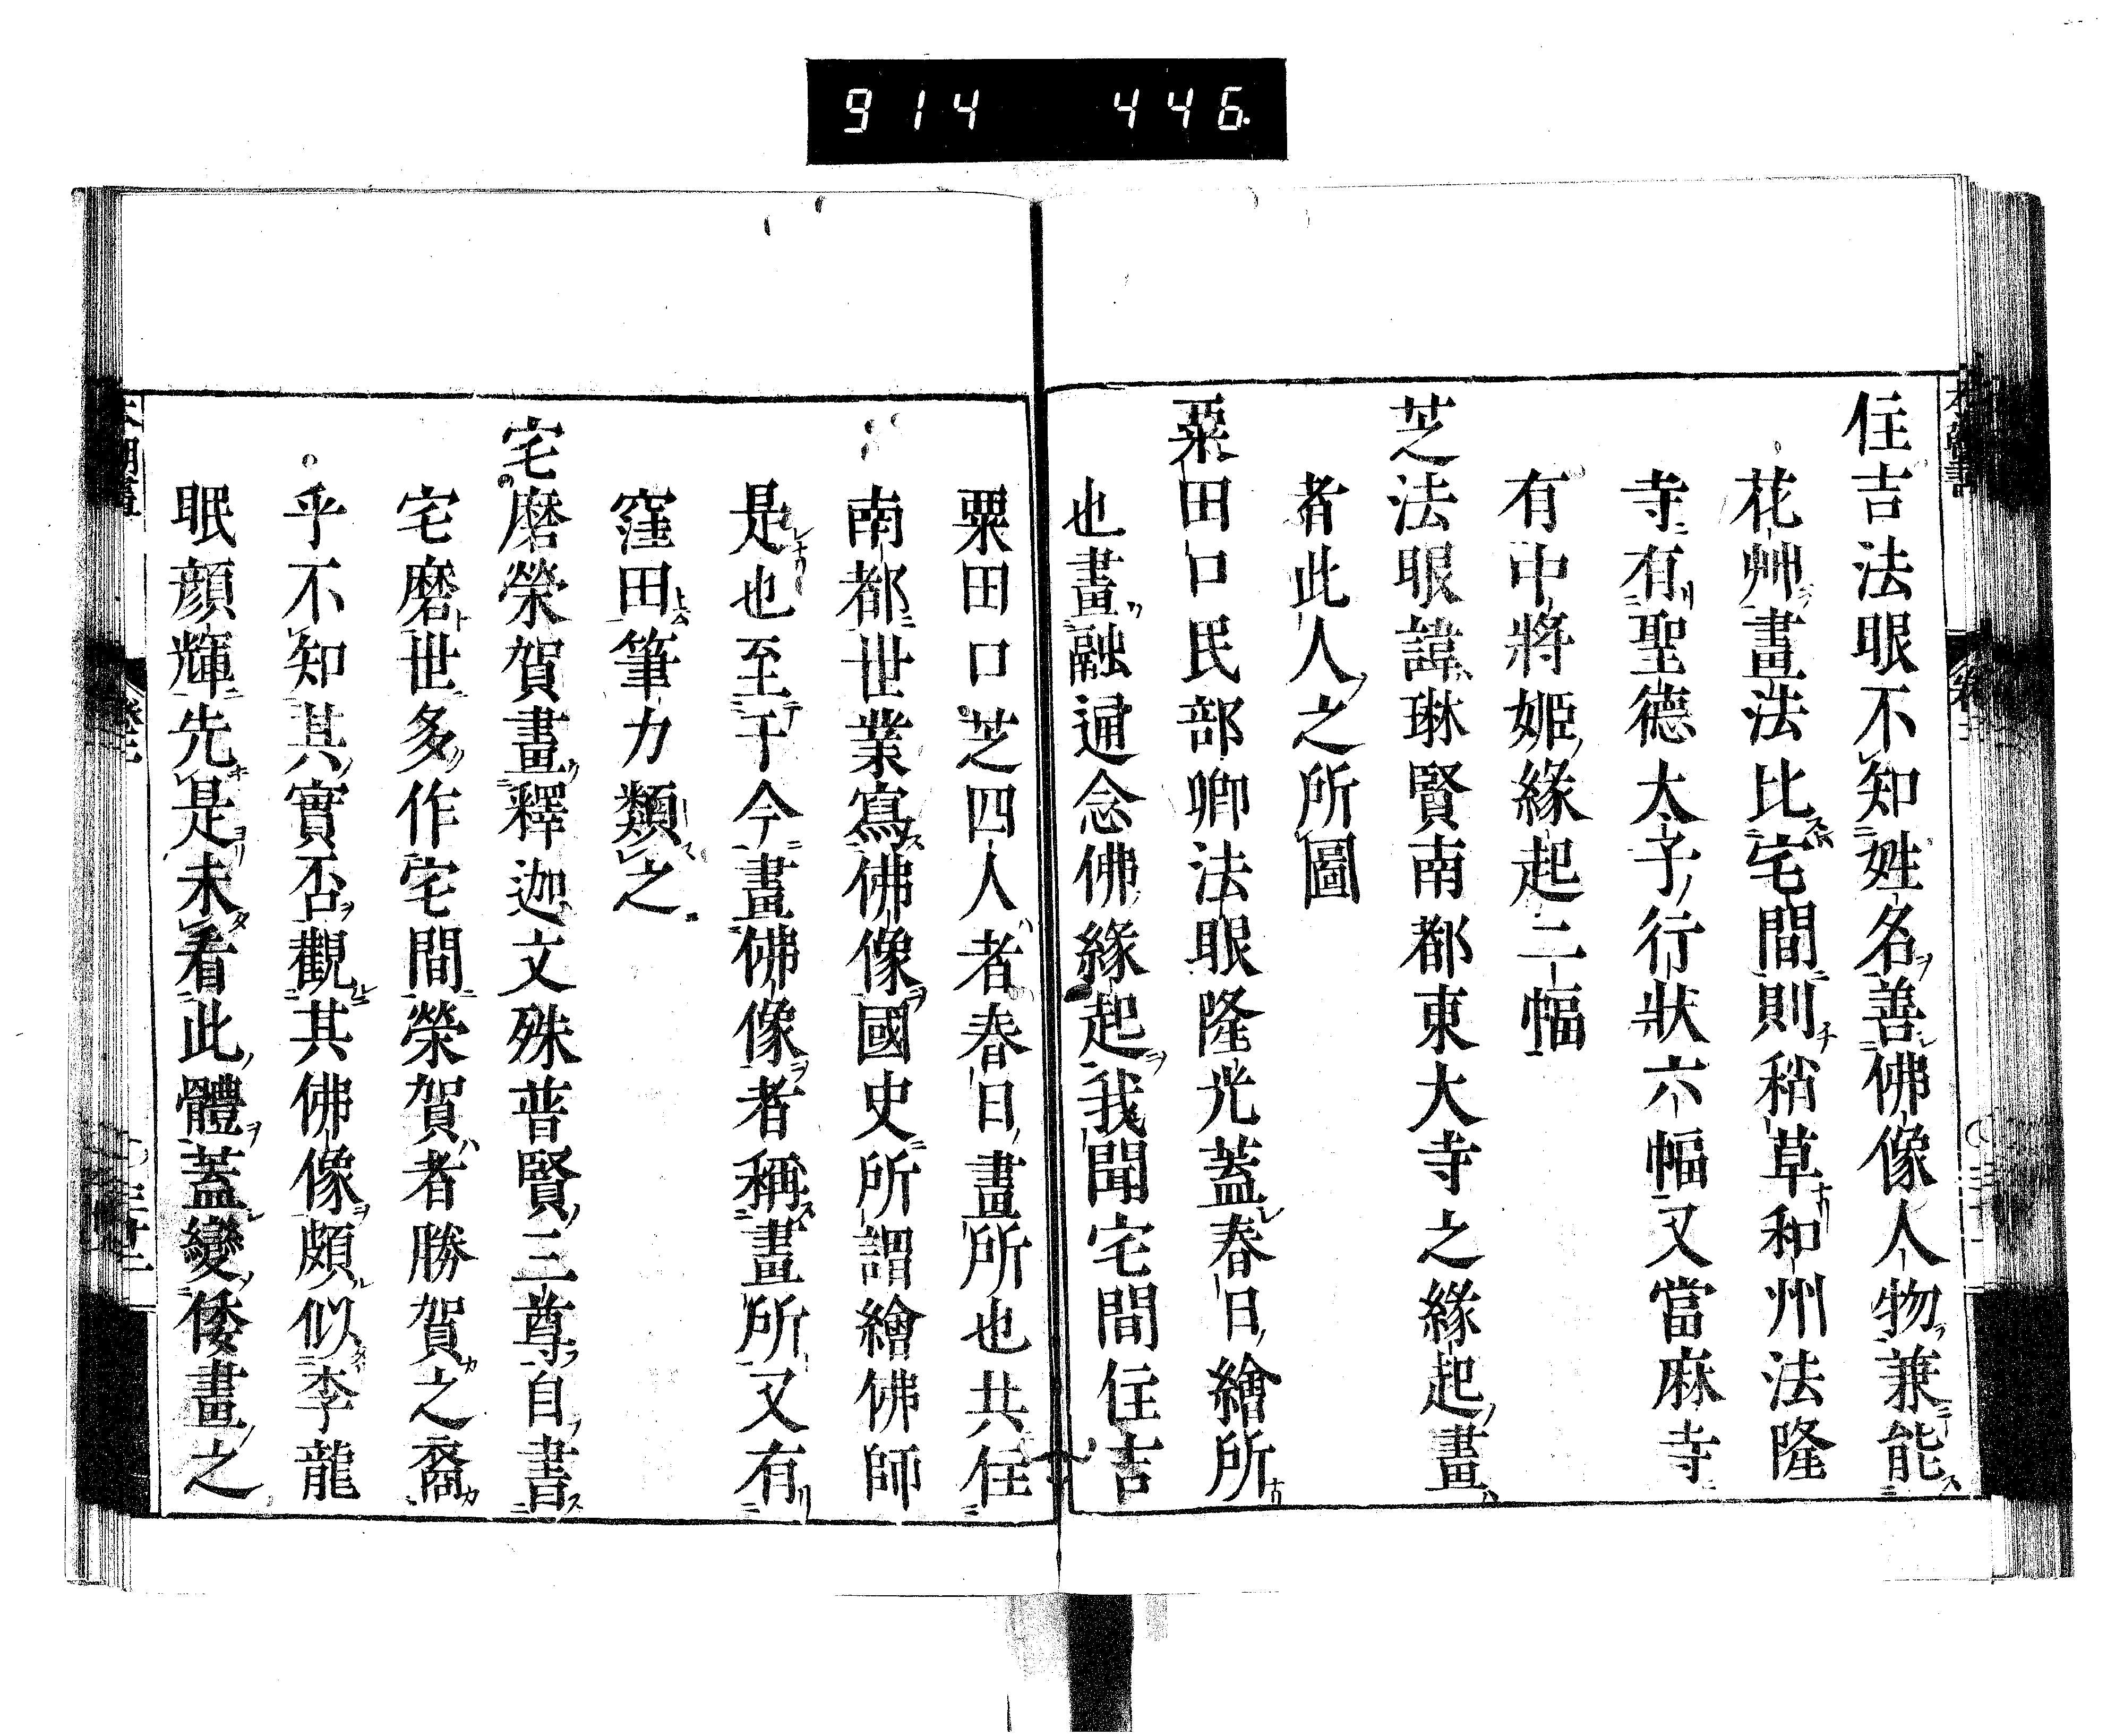 914 446
住吉法眼不知姓名善佛像人物兼能
花艸畫法比宅間則稍草和州法隆
寺有聖德太子行狀六幅又當麻寺
有中將姬緣起二幅
芝法眼諱琳賢南都東大寺之緣起畫
者此人之所圖
粟田口民部卿法眼隆光蓋春日繪所
也畫融通念佛緣起我聞宅間住吉
粟田口芝四人者春日畫所也共住
南都世業寫佛像國史所謂繪佛師
是也至于今畫佛像者稱畫所又有
窪田筆力類之
宅磨榮賀畫釋迦文殊普賢三尊自書
宅磨世多作宅間榮賀者勝賀之裔
乎不知其實否觀其佛像頗似李龍
眠顏輝先是未看此體蓋變倭畫之